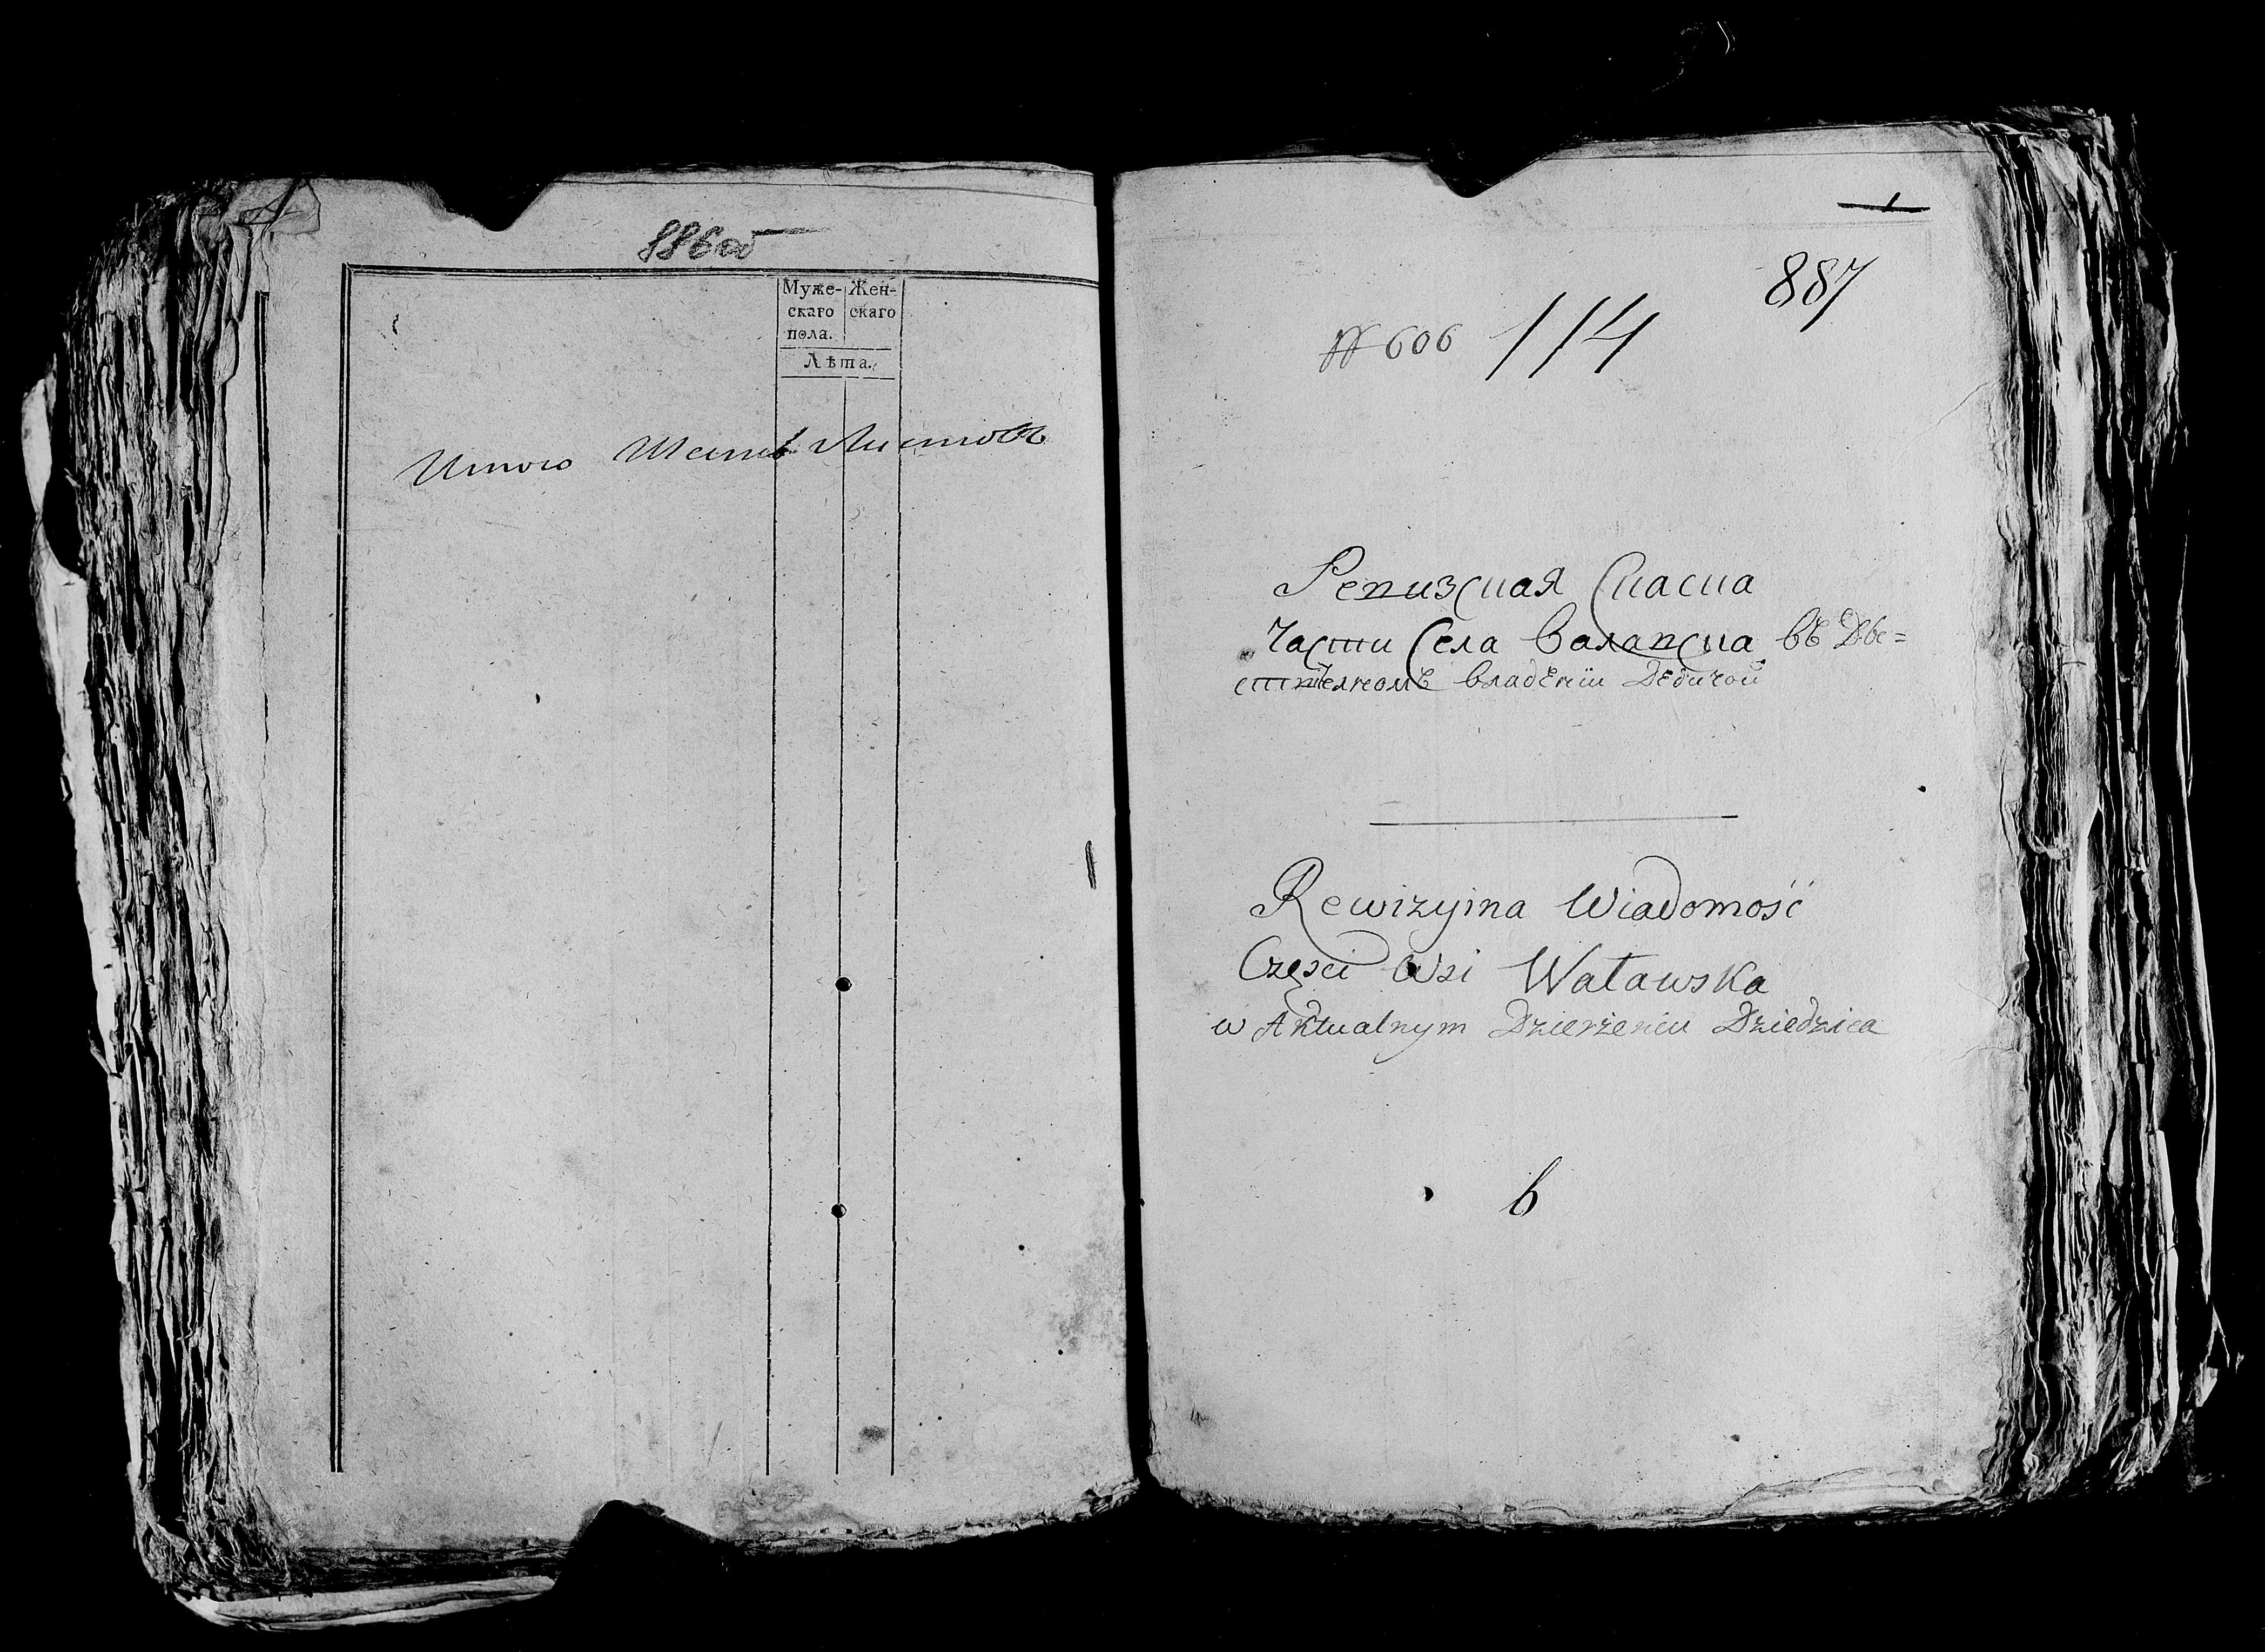 886об
Муже- Жен-
скаго скаго
пола.
Лѣта.
Итого Шесть Листовъ
1
887
№ 606 114
Ревизская Сказка
Части Села Валавска въ Дѣе=
ствителномъ владѣніи Дѣдичои
Rewizyina Wiadomość
Częsci Wsi Waławska
w Aktualnym Dzierżeniu Dziedzica
6